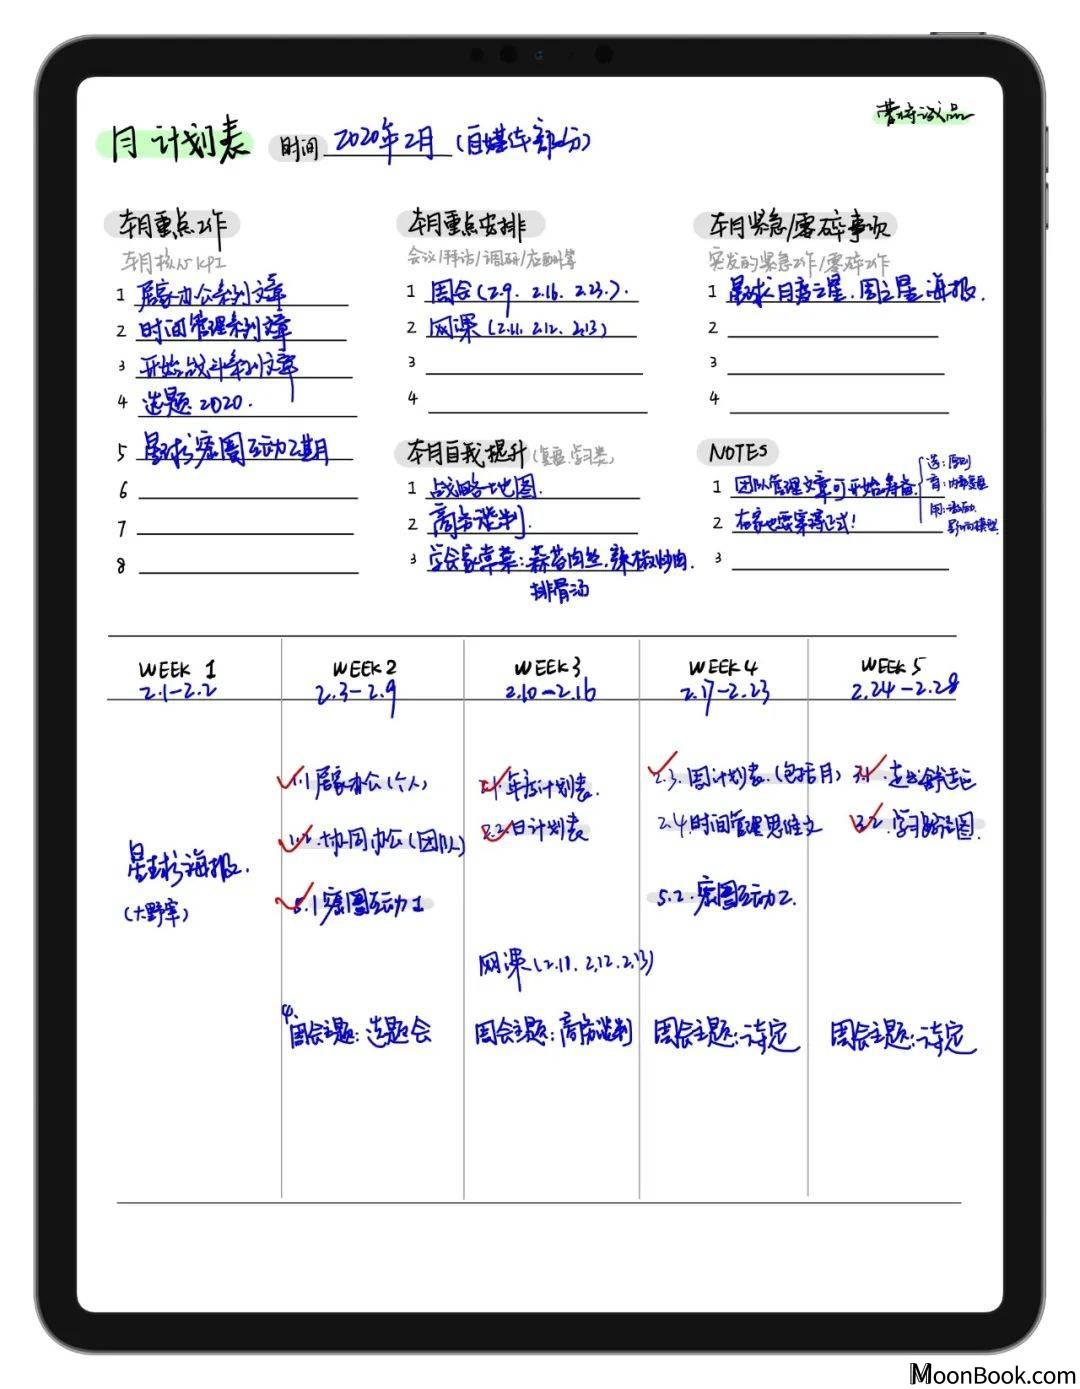 月计划表 时间 2020年2月 (自媒体部分)
本月重点工作
本月核心KPI
1 居家办公系列文章
2 时间管理系列文章
3 开始战斗系列文章
4 选题 2020.
5 星球密圈互动2期
6
7
8
本月重点安排
会议/拜访/调研/应酬等
1 周会 (2.9. 2.16. 2.23.).
2 网课 (2.11. 2.12. 2.13)
3
4
本月自我提升 (复盘.学习类)
1 战略地图.
2 商务谈判.
3 学会家常菜: 蒜苔肉丝. 辣椒炒肉.
排骨汤
本月紧急/零碎事项
突发的紧急工作/零碎工作
1 星球月度之星. 周之星 海报.
2
3
4
NOTES
1 团队管理文章可开始筹备.
选: 原则
育:
用:
2 在家也要穿得正式!
3
WEEK 1
2.1-2.2
星球海报.
WEEK 2
2.3-2.9
1.1 居家办公(个人)
1.2. 协同办公(团队)
5.1 密圈互动1
4.
周会主题: 选题会
WEEK 3
2.10-2.16
2.1 年度计划表.
2.2 日计划表
网课 (2.11. 2.12. 2.13)
周会主题: 商务谈判
WEEK 4
2.17-2.23
2.3. 周计划表. (包括月)
2.4. 时间管理思维文
5.2. 密圈互动2.
周会主题: 待定
WEEK 5
2.24-2.28
3.1. 走出舒适区
3.2. 学习路径图.
周会主题: 待定
MoonBook.com